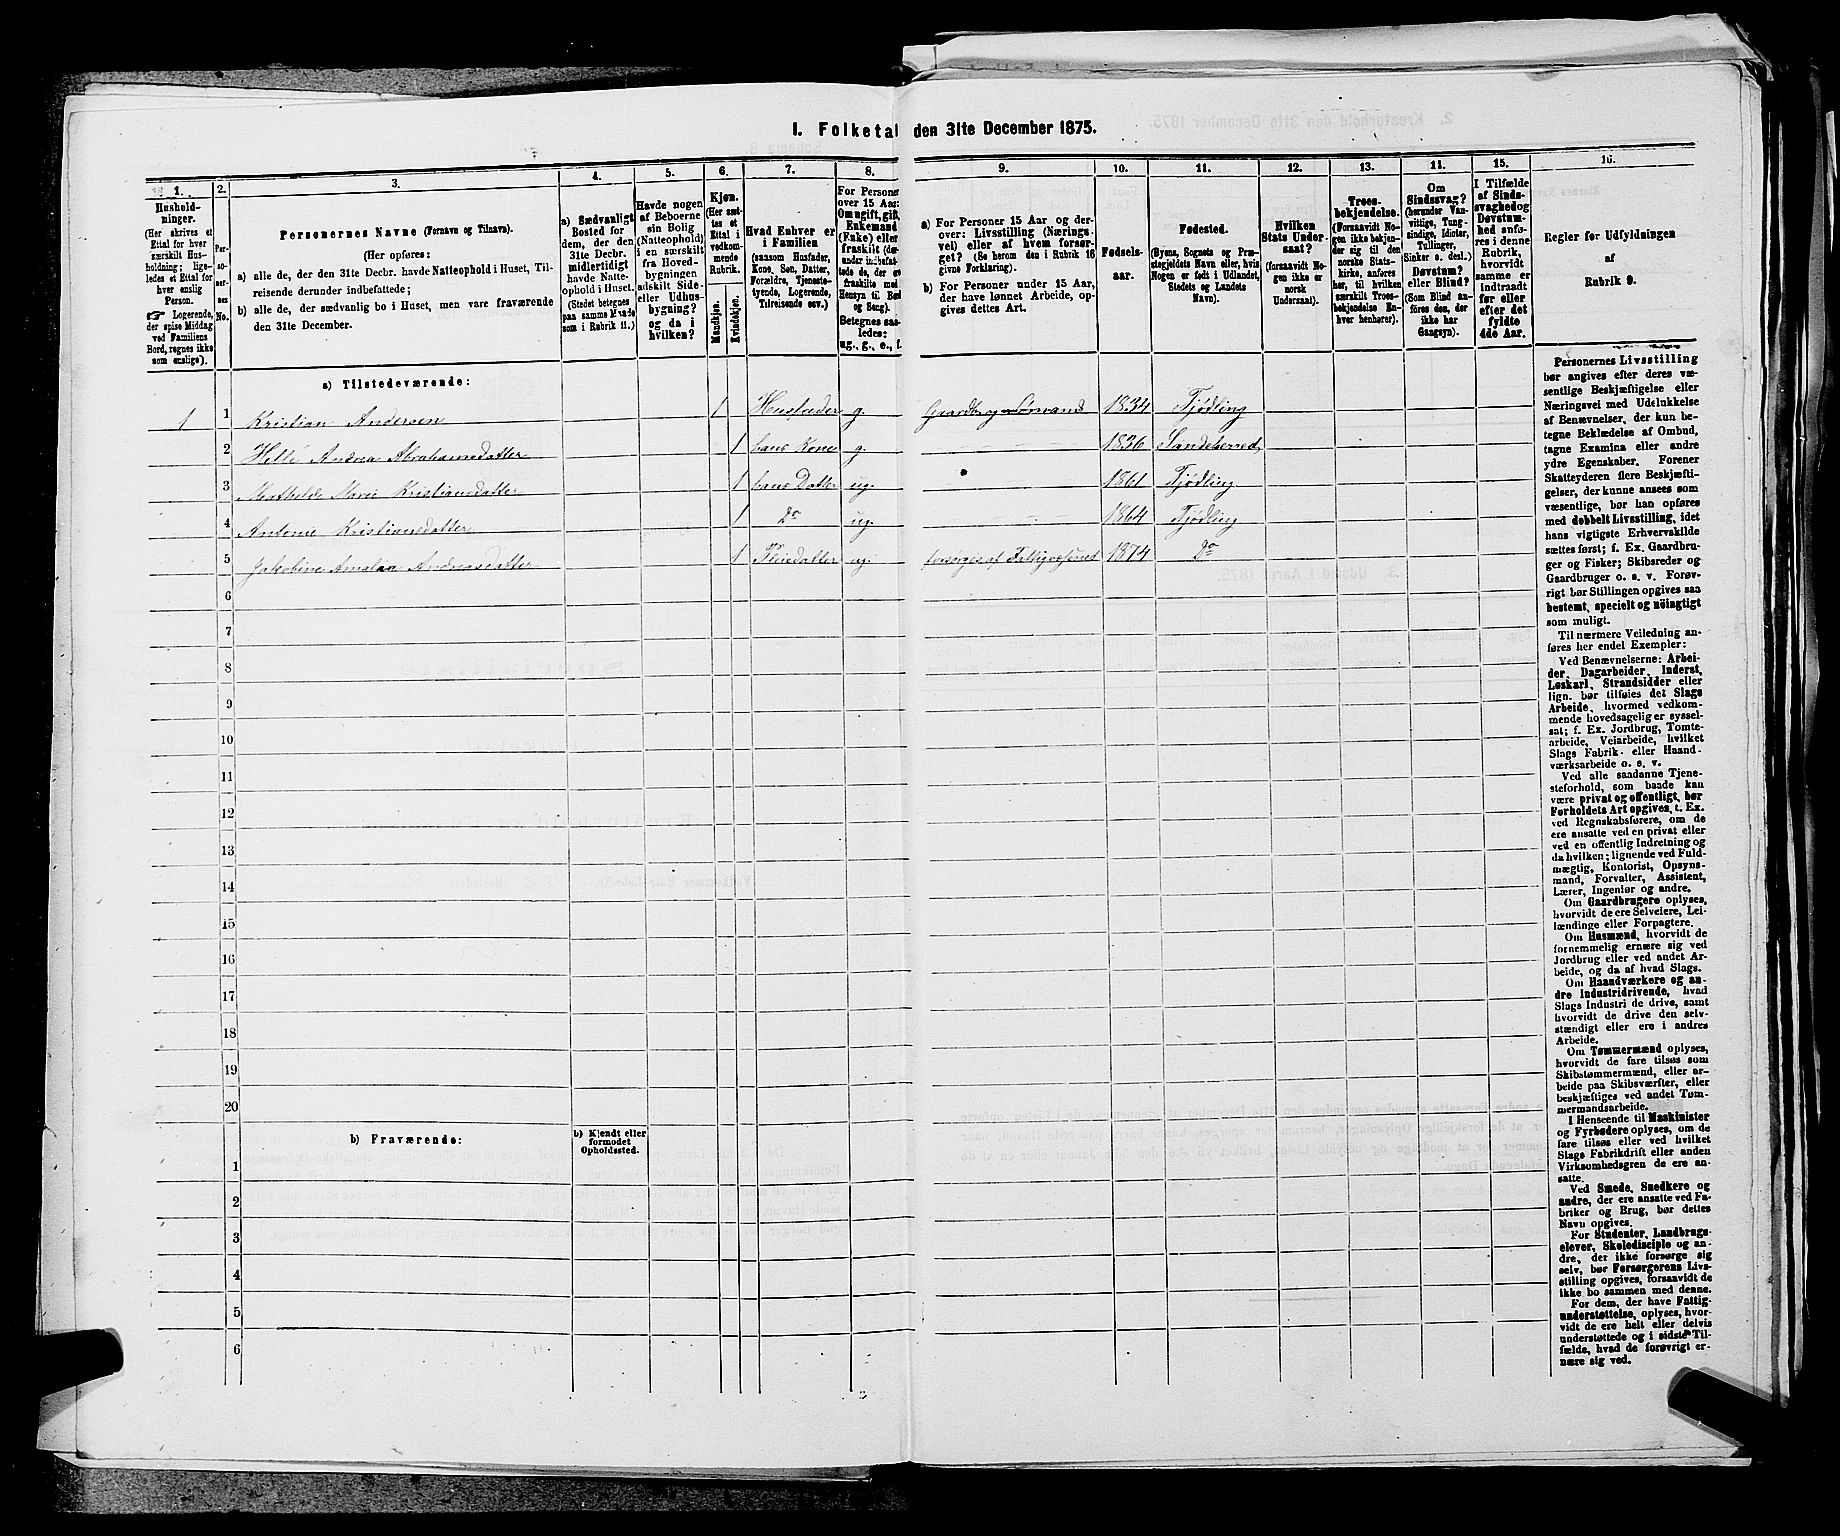 I. Folketal den 31te December 1875.
1.
2.
3.
4.
5.
6.
7.
8.
9.
10.
11.
12.
13.
14.
15.
16.
Hushold-
ninger.
(Her skrives et
Ettal for hver
særskilt Hus-
holdning; lige-
ledes et Ettal for
hver enslig
Person.
☞ Logerende,
der spise Middag
ved Familiens
Bord, regnes ikke
som enslige).
Per-
so-
ner-
nes
No.
Personernes Navne (Fornavn og Tilnavn).
(Her opføres:
a) alle de, der den 31te Decbr. havde Natteophold i Huset, Til-
reisende derunder indbefattede;
b) alle de, der sædvanlig bo i Huset, men vare fraværende
den 31te December.
a) Sædvanligt
Bosted for
dem, der den
31te Decbr.
midlertidigt
havde Natte-
ophold i Huset.
(Stedet betegnes
paa samme Maade
som i Rubrik 11.)
Havde nogen
af Beboerne
sin Bolig
(Natteophold)
i en særskilt
fra Hoved-
bygningen
adskilt Side-
eller Udhus-
bygning?
og da i
hvilken?
Kjøn.
(Her sæt-
tes et
Ettal i
vedkom-
mende
Rubrik.
Mandkjøn.
Kvindekjøn.
Hvad Enhver er
i Familien
(saasom Husfader,
Kone, Søn, Datter,
Forældre, Tjeneste-
tyende, Logerende,
Tilreisende osv.)
For Personer
over 15 Aar:
Om ugift, gift,
Enkemand
(Enke) eller
fraskilt (der-
under indbefat-
tede de, der ere
fraskilte med
Hensyn til Bord
og Seng).
Betegnes saa-
ledes:
ug., g., e., f.
a) For Personer 15 Aar og der-
over: Livsstilling (Nærings-
vei) eller af hvem forsør-
get? (Se herom den i Rubrik 16
givne Forklaring).
b) For Personer under 15 Aar,
der have lønnet Arbeide, op-
gives dettes Art.
Fødsels-
aar.
Fødested.
(Byens, Sognets og Præ-
stegjeldets Navn eller, hvis
Nogen er født i Udlandet,
Stedets og Landets
Navn).
Hvilken
Stats Under-
saat?
(forsaavidt No-
gen ikke er
norsk
Undersaat).
Troes-
bekjendelse.
(Forsaavidt No-
gen ikke bekjen-
der sig til den
norske Stats-
kirke, anføres
her, til hvilken
særskilt Troes-
bekjendelse En-
hver henhører).
Om
Sindssvag?
(herunder Van-
vittige, Tung-
sindige, Idioter,
Tullinger,
Sinker o. desl.)
Døvstum?
eller Blind?
(Som Blind an-
føres den, der
ikke har
Gangsyn).
I Tilfælde
af Sinds-
svaghed og
Døvstum-
hed anfø-
res i denne
Rubrik,
hvorvidt
samme er
indtraadt
før eller
efter det
fyldte
4de Aar.
Regler for Udfyldningen
af
Rubrik 9.
a) Tilstedeværende:
1 1 Kristian Andersen 1 Husfader g. 1834 Tjødling
2 Andrea Abrahamsdatter 1 hans Kone g. 1836 Sandeherred
3 Mathilde Marie Kristiansdatter 1 hans Datter ug. 1861 Tjødling
4 Antonie Kristiansdatter 1 Do ug. 1864 Tjødling
5 Jakobine Amalia Andreasdatter 1 Pleiedatter ug. forsørges af Fattigvæsnet 1874 Do
6
7
8
9
10
11
12
13
14
15
16
17
18
19
20
b) Fraværende:
b) Kjendt eller
formodet
Opholdssted.
1
2
3
4
5
6
Personernes Livsstilling
bør angives efter deres væ-
sentlige Beskjæftigelse eller
Næringsvei med Udelukkelse
af Benævnelser, der kun be-
tegne Beklædelse af Ombud,
tagne Examina eller andre
ydre Egenskaber. Forener
Skatteyderen flere Beskjæfti-
gelser, der kunne ansees som
væsentlige, bør han opføres
med dobbelt Livsstilling, idet
hans vigtigste Erhvervskilde
sættes først; f. Ex. Gaardbru-
ger og Fisker; Skibsreder og
Gaardbruger o. s. v. Forøv-
rigt bør Stillingen opgives saa
bestemt, specielt og nöiagtigt
som muligt.
Til nærmere Veiledning an-
føres her endel Exempler:
Ved Benævnelserne: Arbei-
der, Dagarbeider, Inderst,
Løskarl, Strandsidder eller
lign. bør tilføies det Slags
Arbeide, hvormed vedkom-
mende hovedsagelig er syssel-
sat; f. Ex. Jordbrug, Tomte-
arbeide, Veiarbeide, hvilket
Slags Fabrik- eller Haand-
værksarbeide o. s. v.
Ved alle saadanne Tjene-
steforhold, som baade kan
være privat og offentligt, bør
Forholdets Art opgives, t. Ex.
ved Regnskabsførere, om de
ere ansatte ved en privat eller
ved en offentlig Indretning og
da hvilken; lignende ved Fuld-
mægtig, Kontorist, Opsyns-
mand, Forvalter, Assistent,
Lærer, Ingeniør og andre.
Om Gaardbrugere oplyses,
hvorvidt de ere Selveiere, Lei-
lændinge eller Forpagtere.
Om Husmænd, hvorvidt de
fornemmelig ernære sig ved
Jordbrug eller ved andet Ar-
beide, og da af hvad Slags.
Om Haandværkere og an-
dre Industridrivende, hvad
Slags Industri de drive, samt
hvorvidt de drive den selv-
stændigt eller ere i andres
Arbeide.
Om Tømmermænd oplyses,
hvorvidt de fare tilsøs som
Skibstømmermænd, eller ar-
beide paa Skibsværfter, eller
beskjæftiges ved andet Tøm-
mermandsarbeide.
I Henseende til Maskinister
og Fyrbødere oplyses, om de
fare tilsøs eller ved hvilket
Slags Fabrikdrift eller anden
Virksomhedsgren de ere an-
satte.
Ved Smede, Snedkere og
andre, der ere ansatte ved Fa-
briker og Brug, bør dettes
Navn opgives.
For Studenter, Landbrugs-
elever, Skoledisciple og an-
dre, der ikke forsørge sig
selv, bør Forsørgerens Livs-
stilling opgives, forsaavidt de
ikke bo sammen med denne.
For dem, der have Fattig-
understøttelse, oplyses, hvor-
vidt de ere helt eller delvis
understøttede og i sidste Til-
fælde, hvad de forøvrigt er-
nære sig ved.